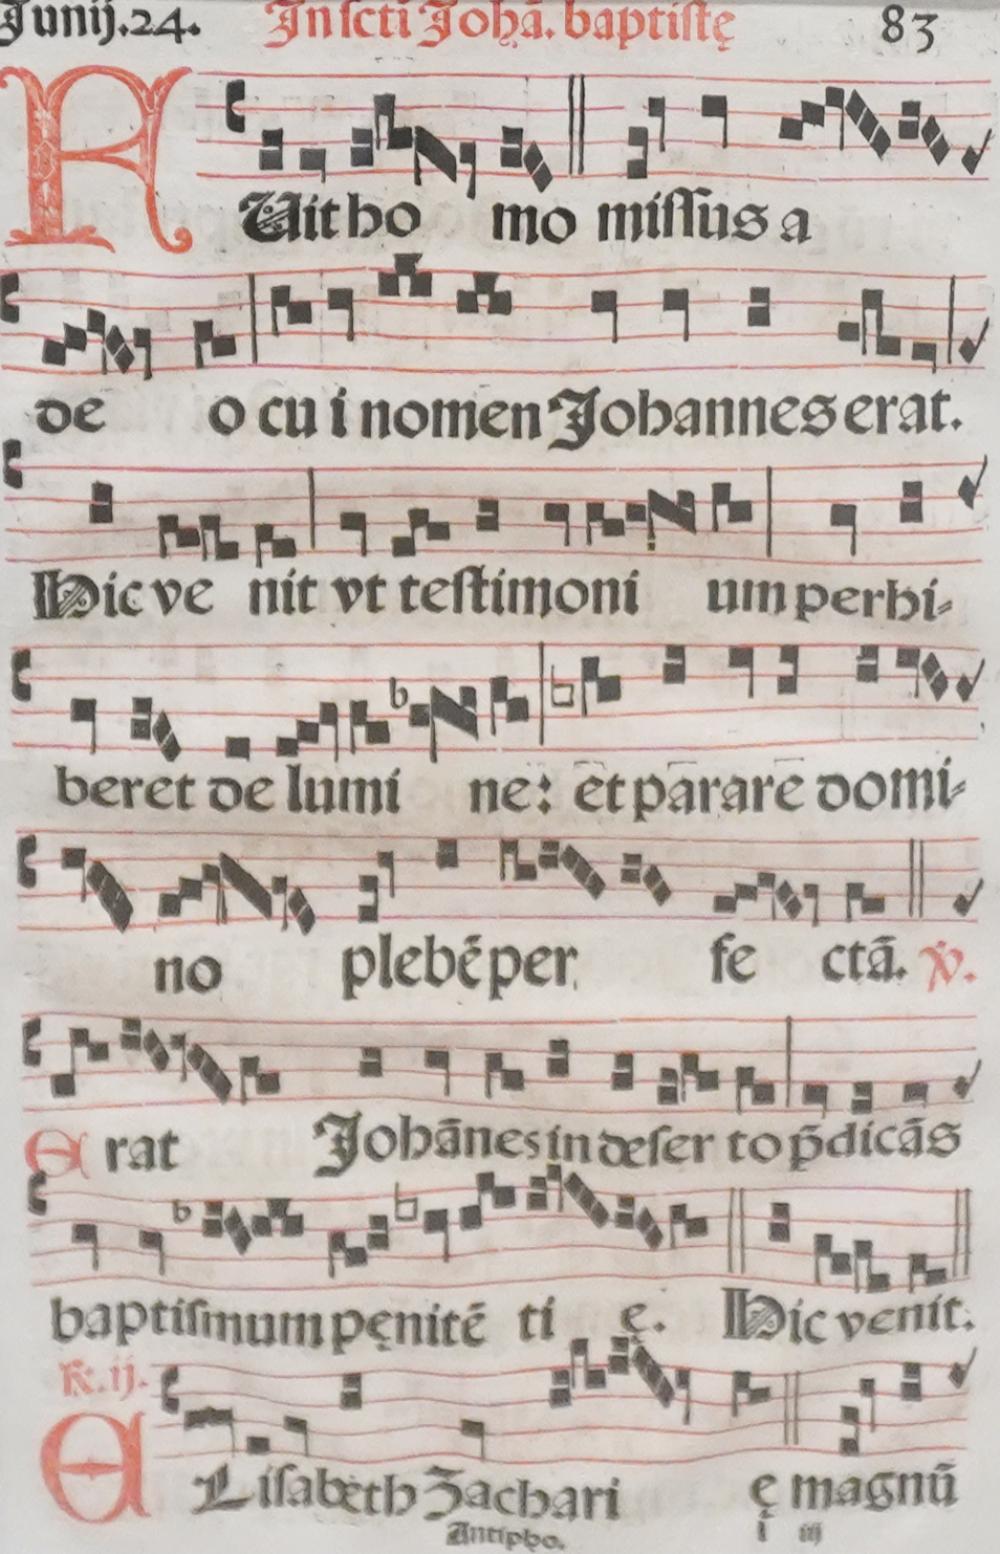 Junij.24. In scti Johā. baptistę 83
FUit ho mo missus a
de o cu i nomen Johannes erat.
Hic ve nit vt testimoni um perhi-
beret de lumi ne: et parare domi-
no plebē per fe ctā. ℣.
Erat Johānes in deser to p̄dicās
baptismum pęnitē ti ę. Hic venit.
℟. ij.
ELisabeth Zachari ę magnū
Antipho. i iij